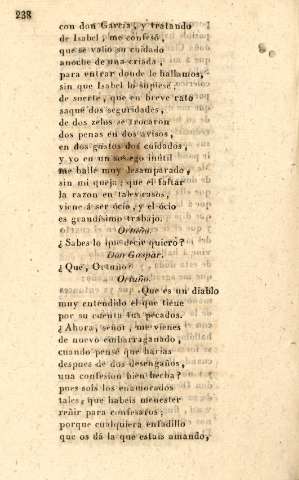 238
con don García, y tratando
de Isabel, me confesó,
que se valió su cuidado
anoche de una criada,
para entrar donde le hallamos,
sin que Isabel lo supiese;
de suerte, que en breve rato
saqué dos seguridades,
de dos zelos se trocaron
dos penas en dos avisos,
en dos gustos dos cuidados,
y yo en un sosiego inútil
me hallé muy desamparado,
sin mi queja; que el faltar
la razon en tales casos,
viene á ser ócio, y el ócio
es grandísimo trabajo.
Ortuño.
¿Sabes lo que decir quiero?
Don Gaspar.
¿Qué, Ortuño?
Ortuño.
Que es un diablo
muy entendido el que tiene
por su cuenta tus pecados.
¿Ahora, señor, me vienes
de nuevo embarraganado,
cuando pensé que harias
despues de dos desengaños,
una confesion bien hecha?
pues sois los enamorados
tales, que habeis menester
reñir para confesaros;
porque cualquiera enfadillo
que os dá la que estais amando,